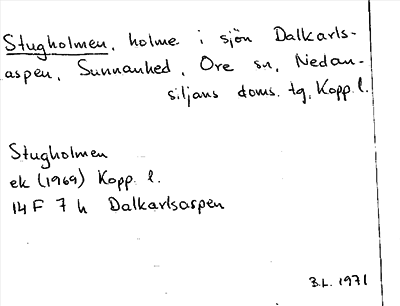 Stugholmen, holme i sjön Dalkarls-
aspen, Sunnanhed, Ore sn, Nedan-
siljans doms. tg, Kopp. l.
Stugholmen
ek (1969) Kopp. l.
14 F 7 h Dalkarlsaspen
B.L. 1971